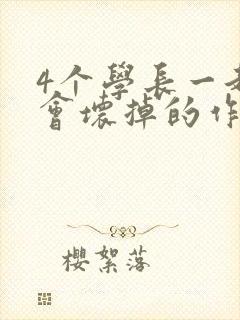 4个學長一
會壞掉的作
櫻絮落